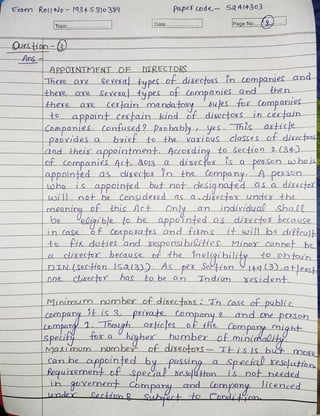 Exam Roll No - 19345310389 Paper code - 52414303
Topic Date Page No. 2
Question - 3
Ans -
APPOINTMENT OF DIRECTORS
There are several types of directors in companies and
there are several types of companies and then
there are certain mandatory rules for companies
to appoint certain kind of directors in certain
Companies. Confused? Probably, yes. This article
provides a brief to the various classes of directors
and their appointment. According to section 2 (34)
of companies Act. 2013 a director is a person who is
appointed as director in the Company. A person
who is appointed but not designated as a director
will not be considered as a director under the
meaning of this Act. Only an individual shall
be eligible to be appointed as director because
in case of corporates and firms it will be difficult
to fix duties and responsibilities. Minor cannot be
a director because of the ineligibility to obtain
DIN (section 152(3)) As per section 149(3), atleast
one director has to be an Indian resident

Minimum number of directors: In case of public
company it is 3, private company 2 and one person
company 1. Though articles of the Company might
specify for a higher number of minimality
Maximum number of directors - It is 15 but more
can be appointed by passing a special resolution
Requirement of special resolution is not needed
in goverment Company and Company licenced
under section 8 Subject to Condition